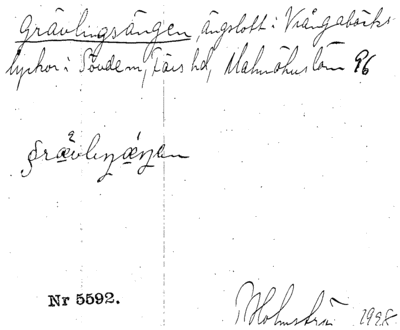 Grävlingsängen, ängslott i Vrångabäcks
lyckor i Sövdem, Färs hd, Malmöhus län 96
græ̀vleŋæ̀ŋen
Nr 5592.
Holmström 1928